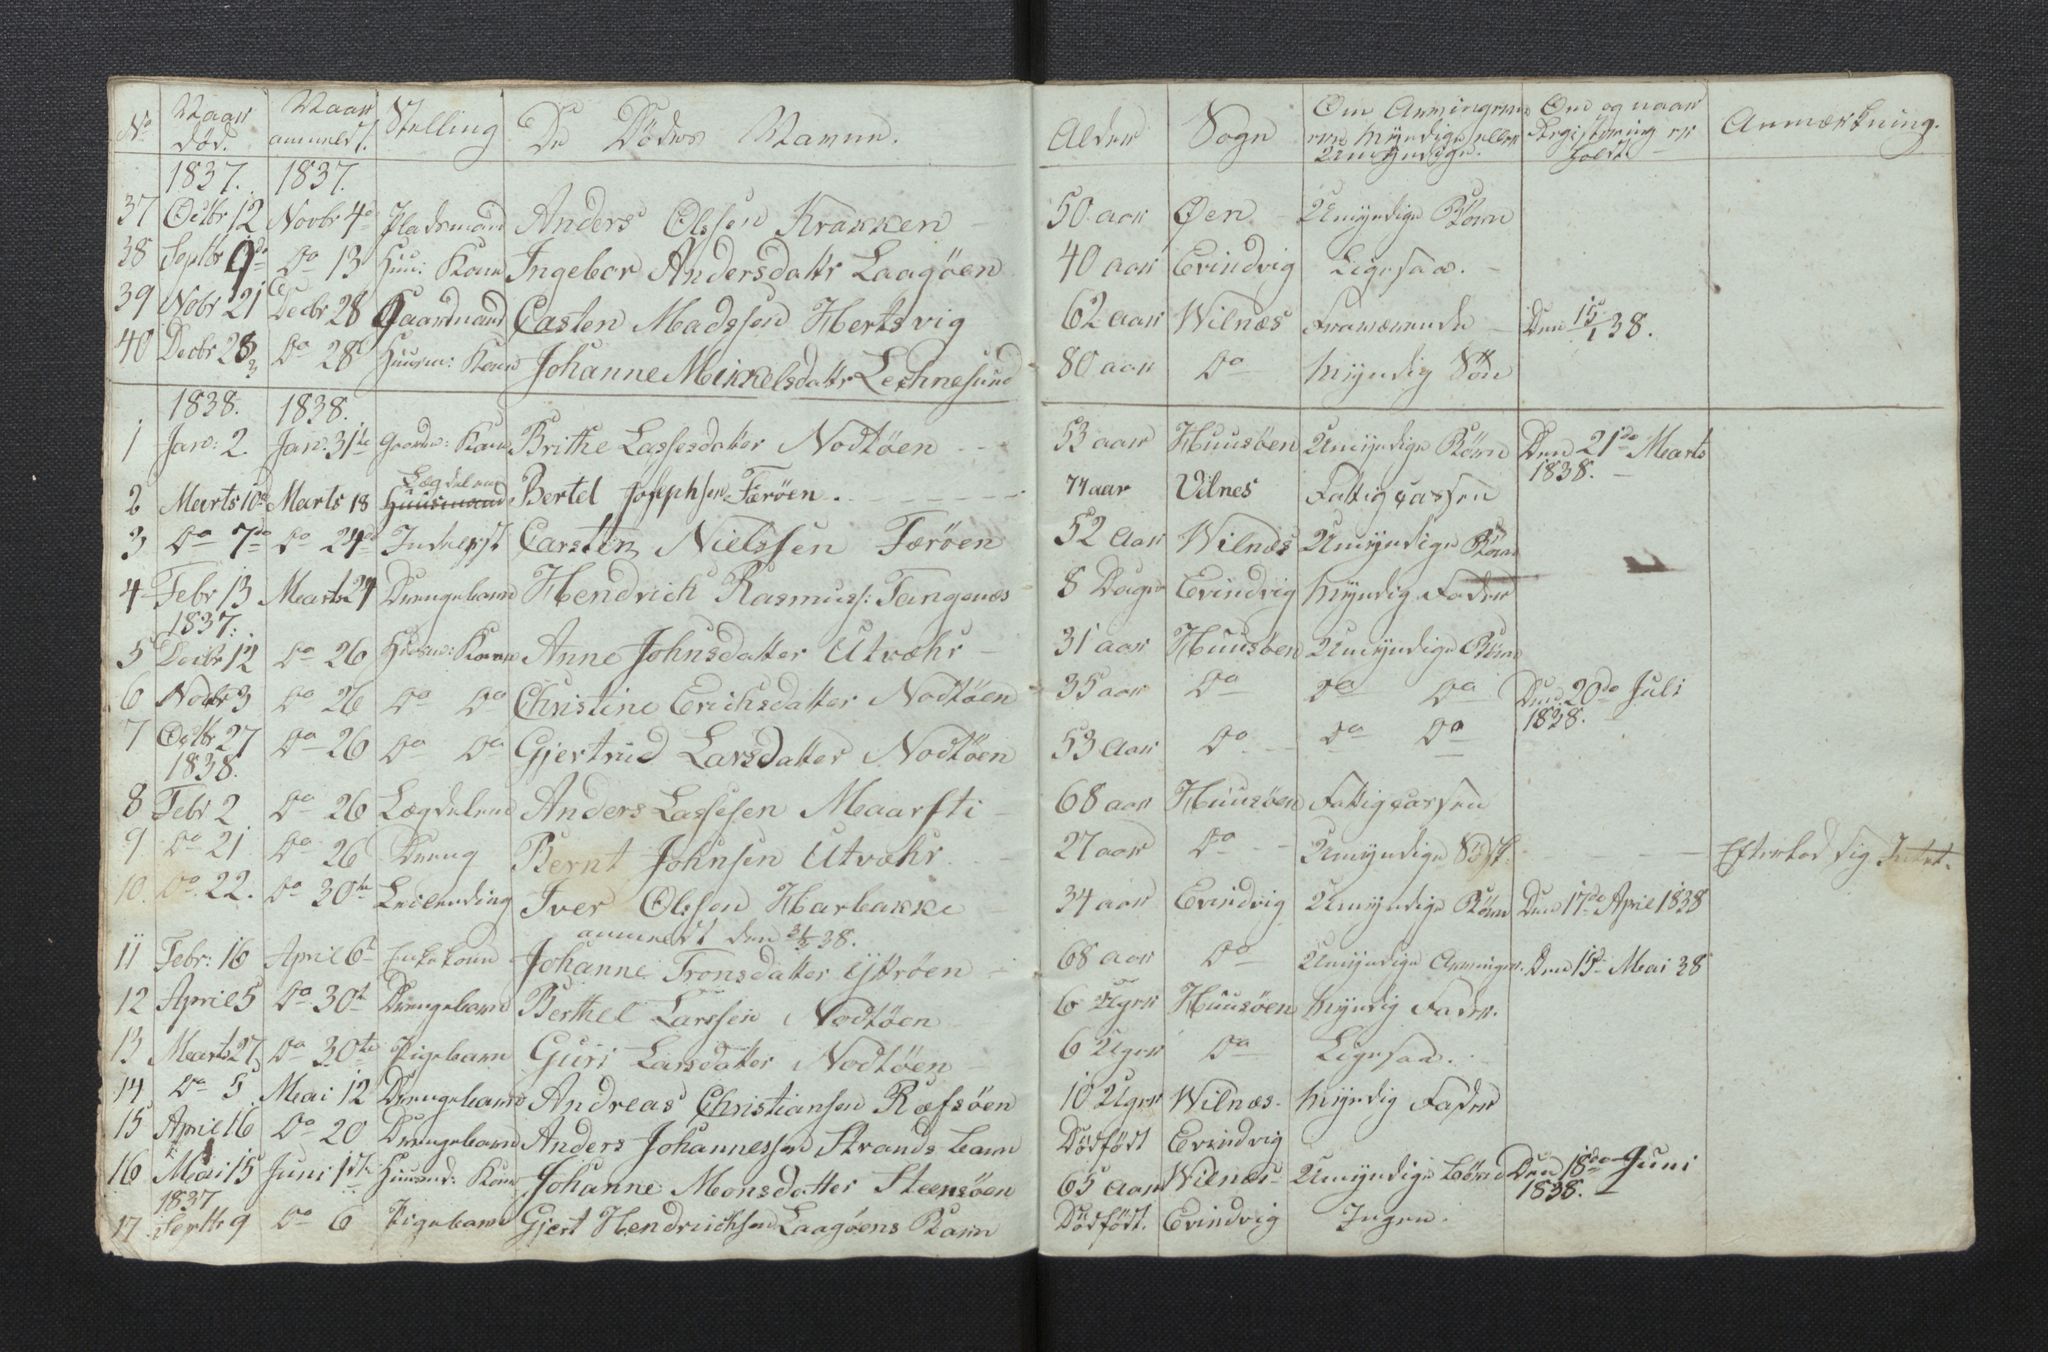 No | Naar død. | Naar anmeldt. | Stelling | De Dödes Navne. | Alder | Sogn | Om Arvingerne ere Myndige eller Umyndige. | Om og naar Registrering er holdt | Anmærkning.
1837. | 1837.
37 | Octbr 12 | Novbr 4de | Pladsmand | Anders Olssen Krakken | 50 aar | Øen | Umyndige Börn
38 | Septbr 9de | Do 13 | Huu: Kone | Ingebor Andersdattr Laagöen | 40 aar | Evindvig | Ligesaa.
39 | Nobr 21 | Decbr 28 | Gaardmand | Casten Madssen Hertsvig | 62 aar | Wilnæs | Fraværende | Den 15/1 38.
40 | Decbr 28 | Do 28 | Huusm: Kone | Johanne Mikkelsdattr Lechnesund | 80 aar | Do | Myndig Sön
1838. | 1838.
1 | Jan: 2. | Jan: 31te | Gaardm: Kone | Brithe Lassesdatter Nodtöen | 53 aar | Huusöen | Umyndige Börn | Den 21de Marts 1838.
2 | Marts 10de | Marts 18 | Lægdelem Huusmand | Bertel Josephsen Færöen. | 74 aar | Vilnes | Fattigcassen
3 | Do 7de | Do 24de | Inderst | Carsten Nielssen Færöen | 52 aar | Wilnæs | Umyndige Börn
4 | Febr 13 | Marts 24 | Drengebarn | Hendrich Rasmuss: Tangenæs | 8 Dage | Evindvig | Myndig Fader
1837:
5 | Decbr 12 | Do 26 | Huusm: Kone | Anne Johnsdatter Utvæhr | 31 aar | Huusöen | Umyndige Börn
6 | Nobr 3 | Do 26 | Do Do | Christine Erichsdatter Nodtöen | 35 aar | Do | Do Do | Den 20de Juli 1838.
7 | Octbr 27 | Do 26 | Do Do | Gjertrud Larsdatter Nodtöen | 53 aar | Do | Do Do
1838.
8 | Febr 2 | Do 26 | Lægdelem | Anders Lassesen Maarsti | 68 aar | Huusöen | Fattigcassen
9 | Do 21 | Do 26 | Dreng | Bernt Johnsen Utvæhr | 27 aar | Do | Umyndige Södsk: | Efterlod sig Intet.
10. | Do 22. | Do 30te | Leilending | Iver Olssen Harbakke | 34 aar | Evindvig | Umyndige Börn | Den 17de April 1838
anmeldt den 31/3 38.
11 | Febr: 16 | April 6te | Enkekone | Johanne Tronsdatter Ytröen | 68 aar | Do | Umyndige Arvinger. | Den 15de Mai 38
12 | April 5 | Do 30te | Drengebarn | Berthel Larssen Nodtöen | 6 Uger | Huusöen | Myndig Fader.
13 | Marts 27 | Do 30te | Pigebarn | Guri Larsdatter Nodtöen | 6 Uger | Do | Ligesaa.
14 | Do 5 | Mai 12 | Drengebarn | Andreas Christiansen Ræfsöen | 10 Uger | Wilnæs | Myndig Fader
15 | April 16 | Do 20 | Drengebarn | Anders Johannessen Strands barn | Dödfödt | Evindvig
16 | Mai 15 | Juni 1ste | Huusmd: Kone | Johanne Monsdatter Steensöen | 65 aar | Wilnæs | Umyndige börn | Den 18de Juni 1838.
1837
17 | Septbr 9 | Do 6 | Pigebarn | Gjert Hendrichsen Laagöens Barn | Dödfödt. | Evindvig | Ingen.